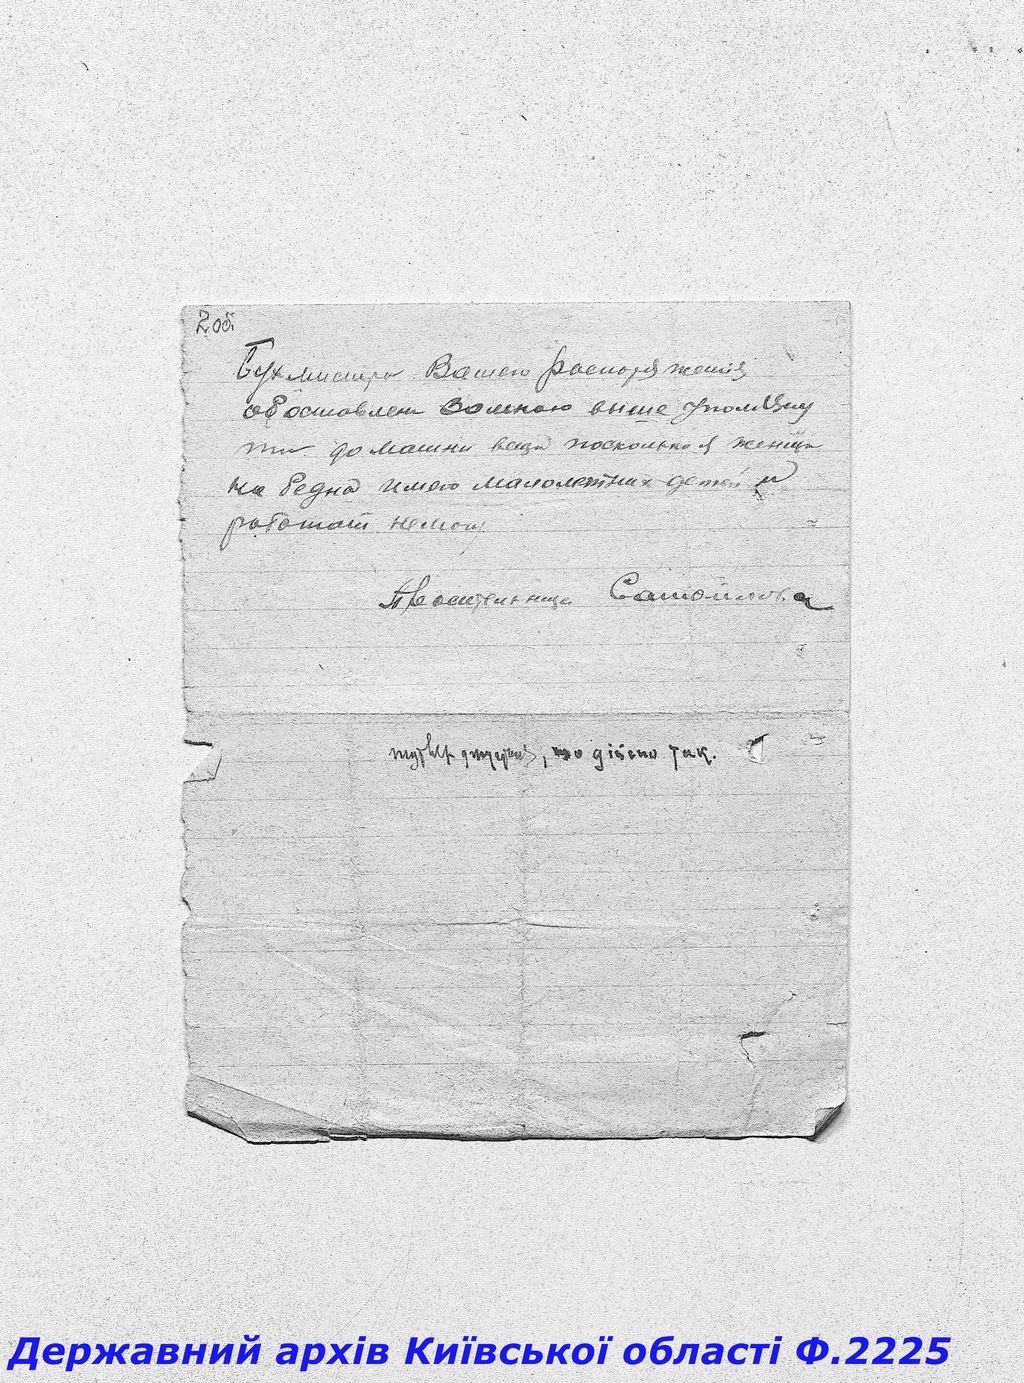 2об
Бухмистра Вашего распоряжения
об оставлен замною выше упомяну
ти домашни вещи поскольку я женщи
на бедна имею малолетних детей и
работат немогу
Просительница Самойлова
, що дійсно так.
Державний архів Київської області Ф.2225